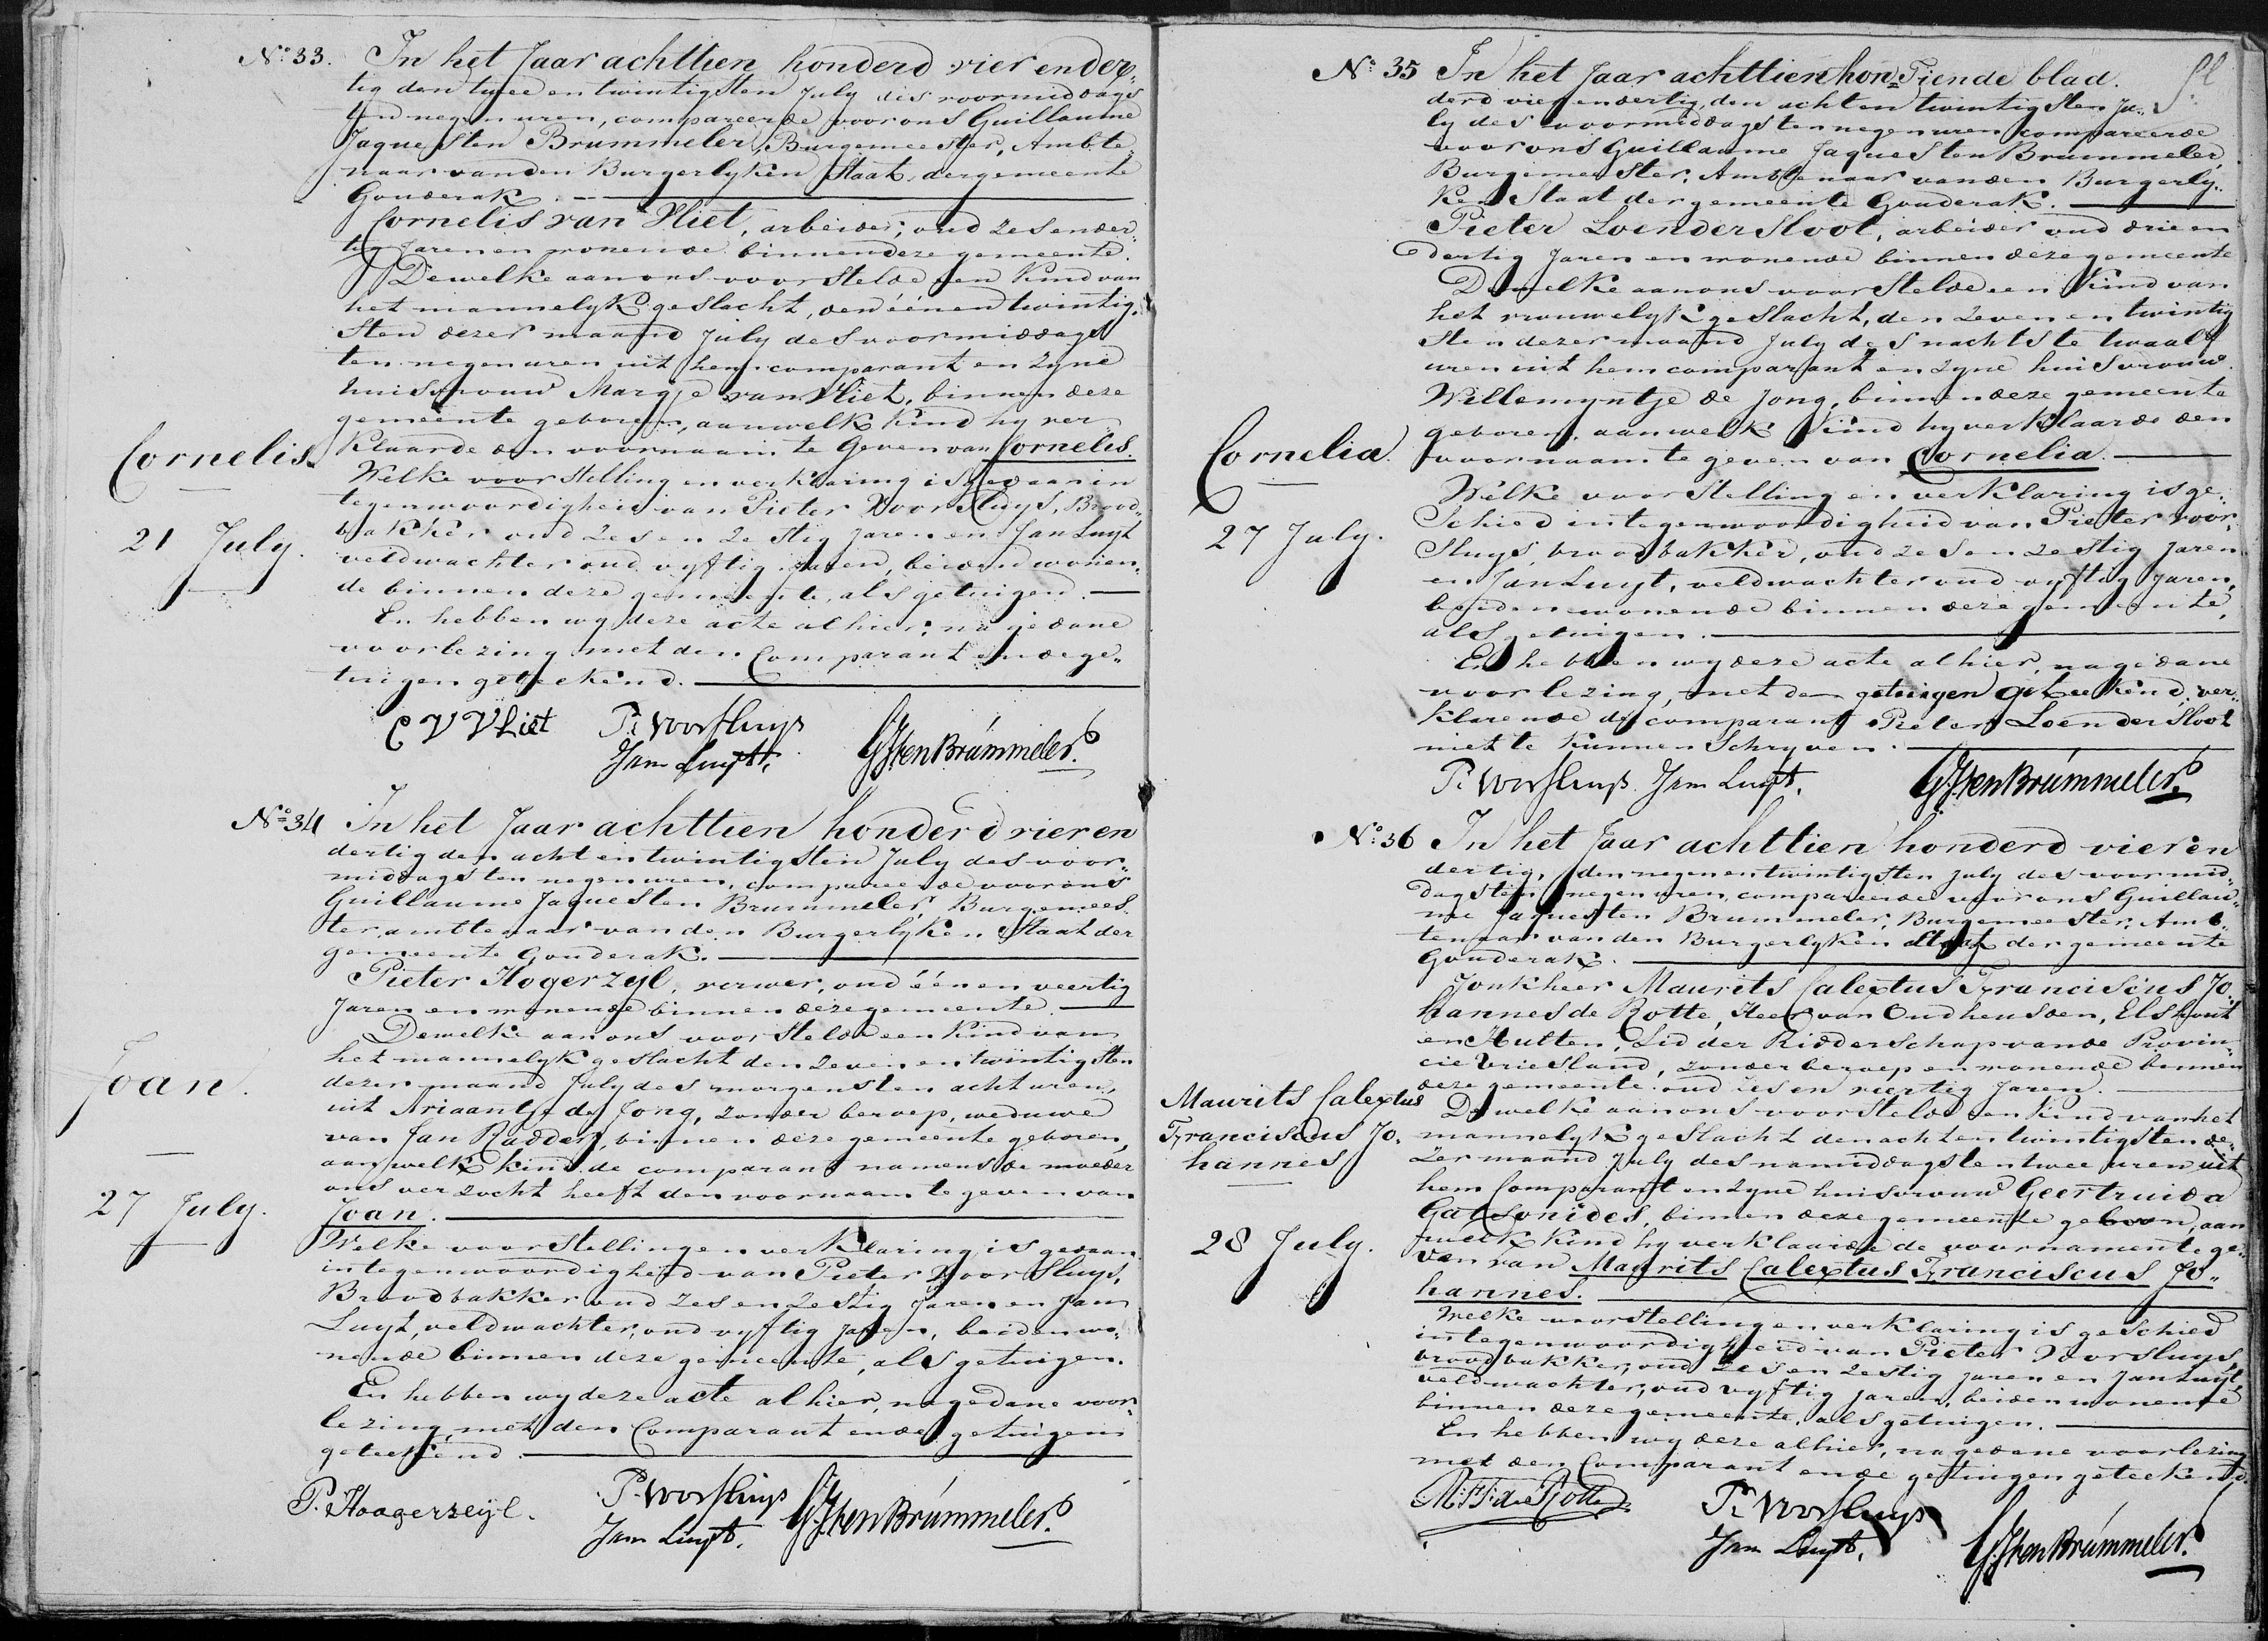 N.º 33. In het Jaar achttien honderd vier en der„
tig den twee en twintigsten July des voormiddags
ten negen uren, compareerde voor ons Guillaume
Jaques ten Brummeler, Burgemeester, Ambte„
naar van den Burgerlyken Staat der gemeente
Gouderak.
Cornelis van Vliet, arbeider, oud zes en der„
tig Jaren en wonende binnen deze gemeente.
Dewelke aan ons voorstelde een Kind van
het mannelyk geslacht, den één en twintig„
sten dezer maand July des voormiddags
ten negen uren uit hem comparant en zyne
huisvrouw Margje van Vliet, binnen deze
gemeente geboren, aan welk Kind hy ver„
klaarde den voornaam te geven van Cornelis.
Welke voorstelling en verklaring is gedaan in
tegenwoordigheid van Pieter Voorsluys, Brood„
bakker oud zes en zestig Jaren en Jan Luyt
veldwachter oud vyftig Jaren, beiden wonen„
de binnen deze gemeente, als getuigen.
En hebben wy deze acte alhier, na gedane
voorlezing met den Comparant en de ge„
tuigen geteekend.
Cornelis
21 July.
C V Vliet P. Voorsluys
Jan Luyt. GJ ten Brümmeler.
N.º 34 In het Jaar achttien honderd vier en
dertig den acht en twintigsten July des voor„
middags ten negen uren, compareerde voor ons
Guillaume Jaques ten Brummeler Burgemees„
ter ambtenaar van den Burgerlyken Staat der
gemeente Gouderak.
Pieter Hogerzyl, verwer, oud één en veertig
Jaren en wonende binnen deze gemeente.
Dewelke aan ons voorstelde een Kind van
het mannelyk geslacht den zeven en twintigsten
dezer maand July des morgens ten acht uren,
uit Ariaantje de Jong, zonder beroep, weduwe
van Jan Radder, binnen deze gemeente geboren,
aan welk kind de comparant namens de moeder
ons verzocht heeft den voornaam te geven van
Joan.
Welke voorstelling en verklaring is gedaan
in tegenwoordigheid van Pieter Voorsluys,
Broodbakker oud zes en zestig Jaren en Jan
Luyt, veldwachter, oud vyftig Jaren, beiden wo„
nende binnen deze gemeente, als getuigen.
En hebben wy deze acte alhier, na gedane voor„
lezing, met den Comparant en de getuigen
geteekend.
Joan.
27 July.
P. Hoogerzeijl. P. Voorsluys
Jan Luyt. GJ ten Brümmeler.
N.º 35 In het Jaar achttien hon„ Tiende blad.
derd vier en dertig, den acht en twintigsten Ju„
ly des voormiddags ten negen uren compareerde
voor ons Guillaume Jaques ten Brummeler,
Burgemeester, Ambtenaar van den Burgerly„
ken Staat der gemeente Gouderak.
Pieter Loendersloot, arbeider oud drie en
dertig Jaren en wonende binnen deze gemeente
Dewelke aan ons voorstelde een Kind van
het vrouwelyk geslacht, den zeven en twintig
sten dezer maand July des nachts te twaalf
uren uit hem comparant en zyne huisvrouw
Willemyntje de Jong, binnen deze gemeente
geboren, aan welk Kind hy verklaarde den
voornaam te geven van Cornelia.
Welke voorstelling en verklaring is ge„
schied in tegenwoordigheid van Pieter Voor„
sluys, broodbakker, oud zes en zestig Jaren
en Jan Luyt, veldwachter oud vyftig Jaren,
beiden wonende binnen deze gemeente,
als getuigen.
En hebben wy deze acte alhier, na gedane
voorlezing, met den getuigen geteekend, ver„
klarende de comparant Pieter Loendersloot
niet te kunnen Schryven.
Cornelia.
27 July.
P. Voorsluys Jan Luyt. GJ ten Brümmeler.
N.º 36 In het Jaar achttien honderd vier en
dertig, den negen en twintigsten July des voormid„
dags ten negen uren, compareerde voor ons Guillau„
me Jaques ten Brummeler, Burgemeester, Amb„
tenaar van den Burgerlyken Staat der gemeente
Gouderak.
Jonkheer Maurits Calextus Franciscus Jo„
hannes de Rotte, Heer van Oudheusden, Elshout
en Hulten, Lid der Ridderschap van de Provin„
cie Vriesland, zonder beroep en wonende binnen
deze gemeente oud zes en veertig Jaren.
Dewelke aan ons voorstelde een Kind van het
mannelyk geslacht den acht en twintigsten de„
zer maand July des namiddags ten twee uren uit
hem Comparant en zyne huisvrouw Geertruida
Gatsonides, binnen deze gemeente geboren, aan
welk Kind hy verklaarde de voornamen te ge„
ven van Maurits Calextus Franciscus Jo„
hannes.
Welke voorstelling en verklaring is geschied
in tegenwoordigheid van Pieter Voorsluys,
broodbakker, oud zes en zestig Jaren en Jan Luyt
veldwachter, oud vyftig Jaren, beiden wonende
binnen deze gemeente, als getuigen.
En hebben wy deze alhier, na gedane voorlezing
met den Comparant en de getuigen geteekend.
Maurits Calextus
Franciscus Jo„
hannes
28 July.
P. Voorsluys
Jan Luyt. GJ ten Brümmeler.